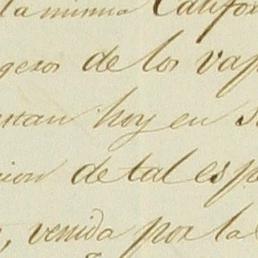 la misma Califor
geros de los vap
estan hoy en S
cion de tal esp
, venida por la